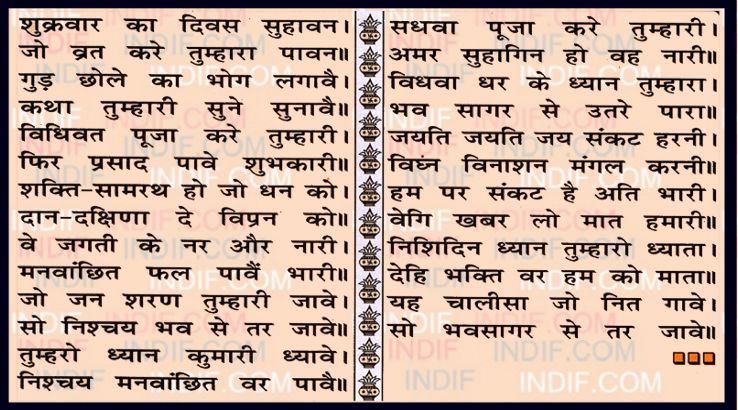 शुक्रवार का दिवस सुहावन।
जो व्रत करे तुम्हारा पावन॥
गुड़ छोले का भोग लगावै।
कथा तुम्हारी सुने सुनावै॥
विधिवत पूजा करे तुम्हारी।
फिर प्रसाद पावे शुभकारी॥
शक्ति-सामरथ हो जो धन को।
दान-दक्षिणा दे विप्रन को॥
वे जगती के नर और नारी।
मनवांछित फल पावैं भारी॥
जो जन शरण तुम्हारी जावे।
सो निश्चय भव से तर जावे॥
तुम्हरो ध्यान कुमारी ध्यावे।
निश्चय मनवांछित वर पावै॥
सधवा पूजा करे तुम्हारी।
अमर सुहागिन हो वह नारी॥
विधवा धर के ध्यान तुम्हारा।
भव सागर से उतरे पारा॥
जयति जयति जय संकट हरनी।
विघ्न विनाशन मंगल करनी॥
हम पर संकट है अति भारी।
वेगि खबर लो मात हमारी॥
निशिदिन ध्यान तुम्हारो ध्याता।
देहि भक्ति वर हम को माता॥
यह चालीसा जो नित गावे।
सो भवसागर से तर जावे॥
INDIF.COM